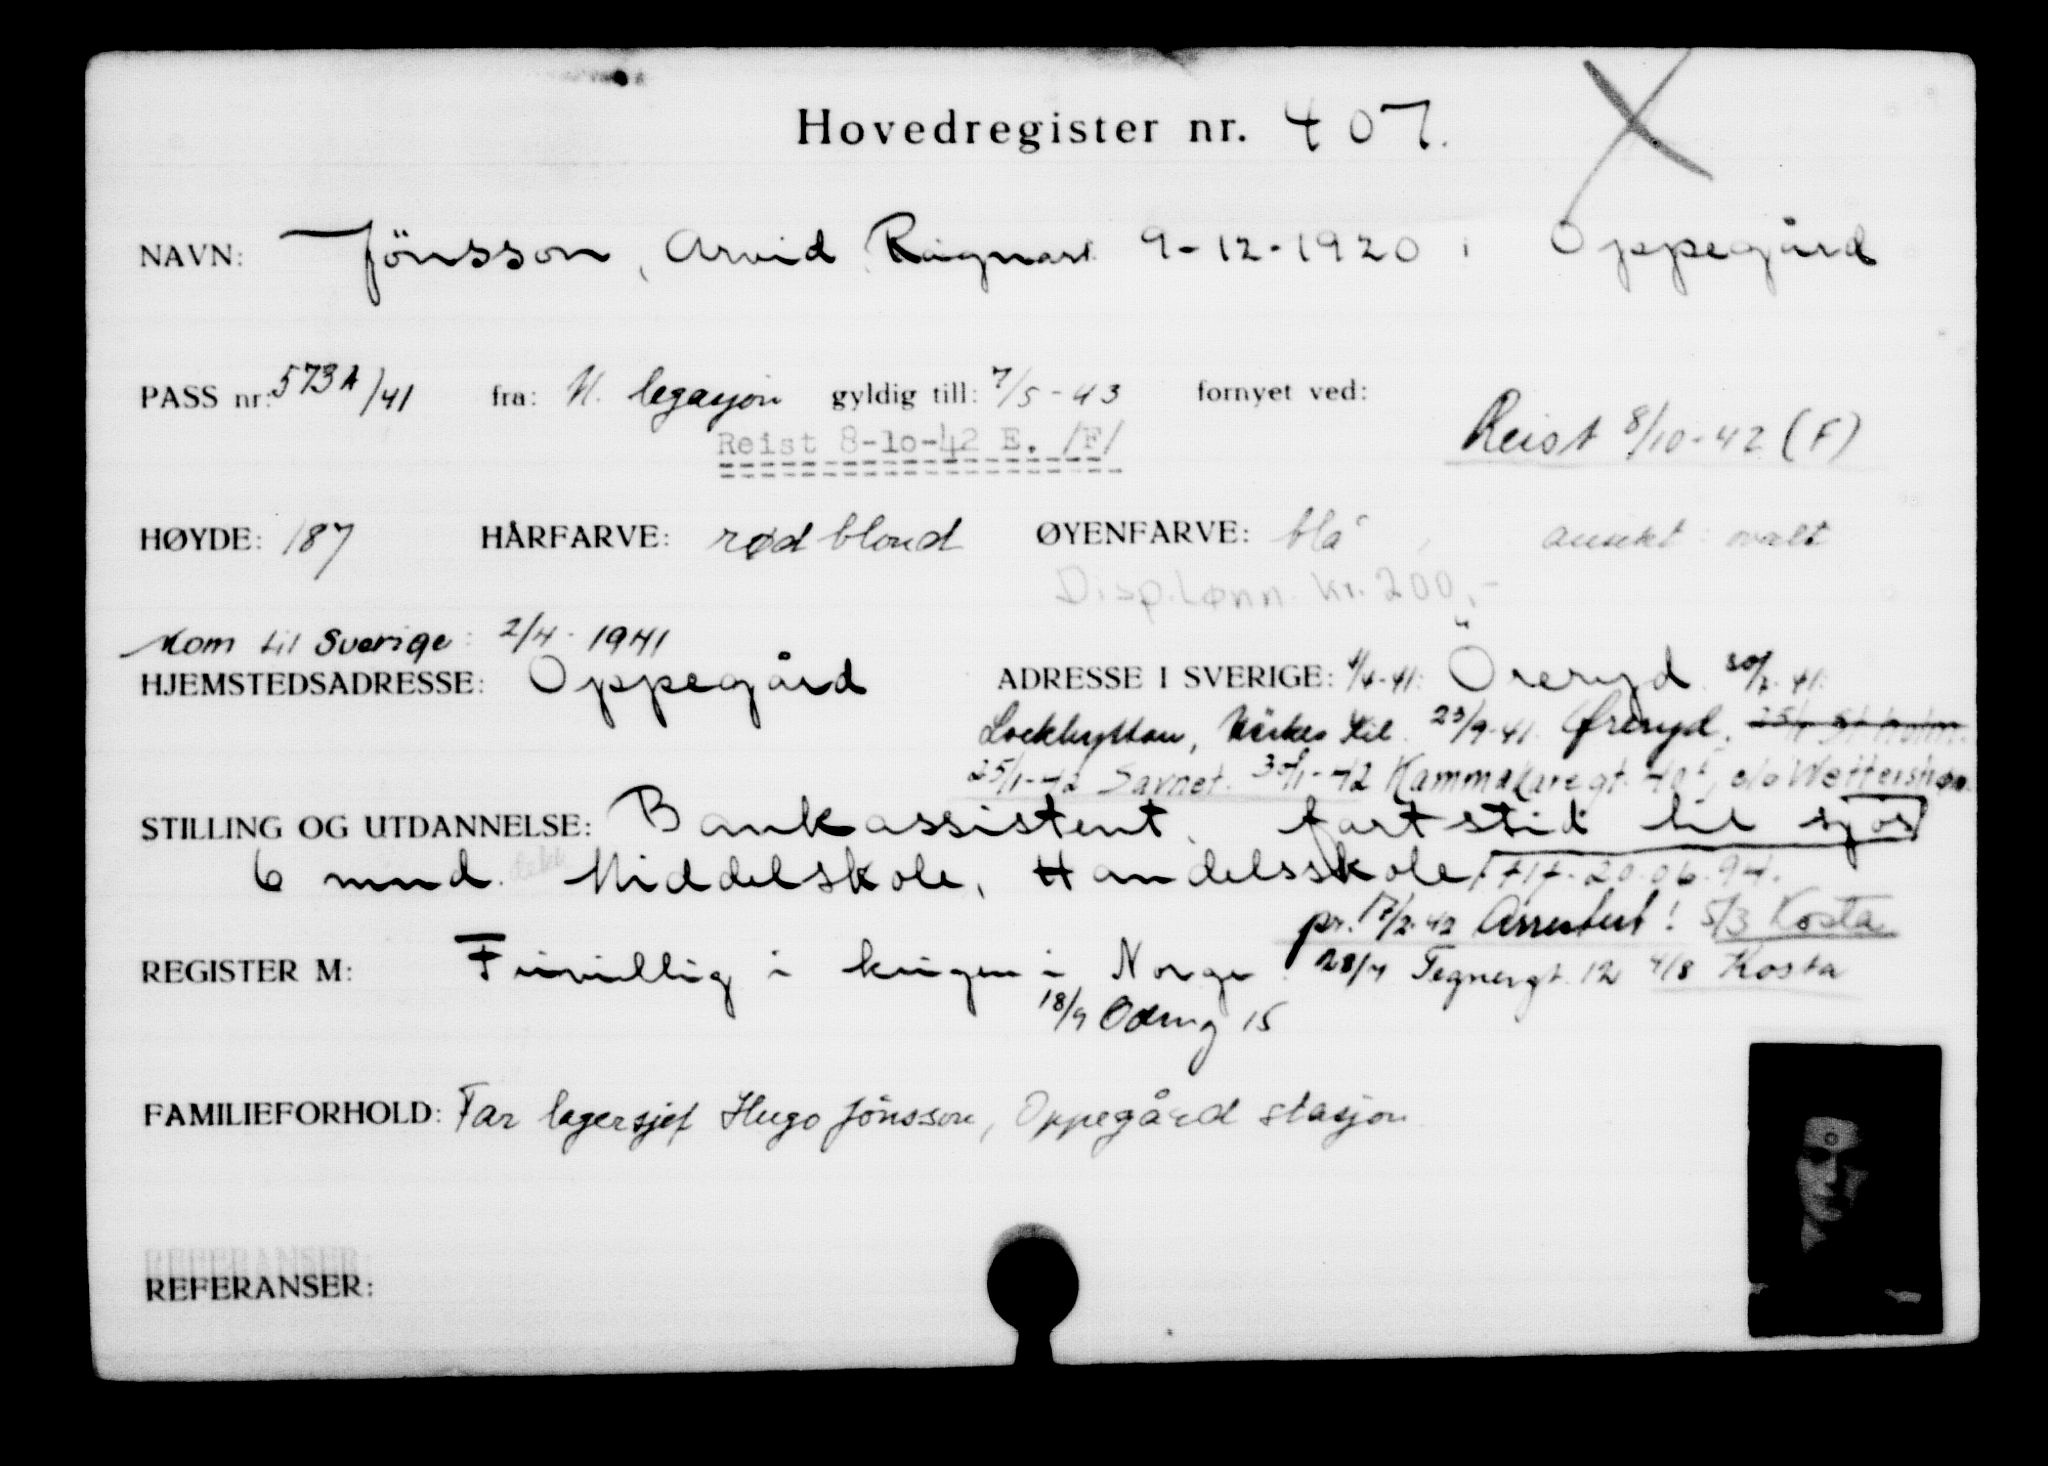 Hovedregister nr. 407.
NAVN: Jönsson, Arvid Ragnar 9-12-1920 i Oppegård
PASS nr: 573A/41 fra: N. legasjon gyldig till: 7/5-43 fornyet ved:
Reist 8-10-42 E. /F/
Reist 8/10-42 (F)
HØYDE: 187 HÅRFARVE: rødblond ØYENFARVE: blå ansikt: ovalt
Disp.Lønn. kr. 200,-
Kom til Sverige: 2/4-1941
HJEMSTEDSADRESSE: Oppegård ADRESSE I SVERIGE: 4/4-41: Öreryd 30/7-41:
Lockhyttan, Kil. 23/9-41 Øreryd, St.holm.
25/1-42 Savnet. 30/1-42 Kammakaregt. 40, c/o Wetterstrøm
STILLING OG UTDANNELSE: Bankassistent, fartstid til sjøs
6 mnd. Middelskole, Handelsskole tlf. 20.06.94.
pr. 17/2-42 Arrestert! 5/3 Kosta
REGISTER M: Frivillig i krigen i Norge. 28/4 Tegnergt. 12 4/8 Kosta
18/9 Odeng 15
FAMILIEFORHOLD: Far lagersjef Hugo Jönsson, Oppegård stasjon
REFERANSER: